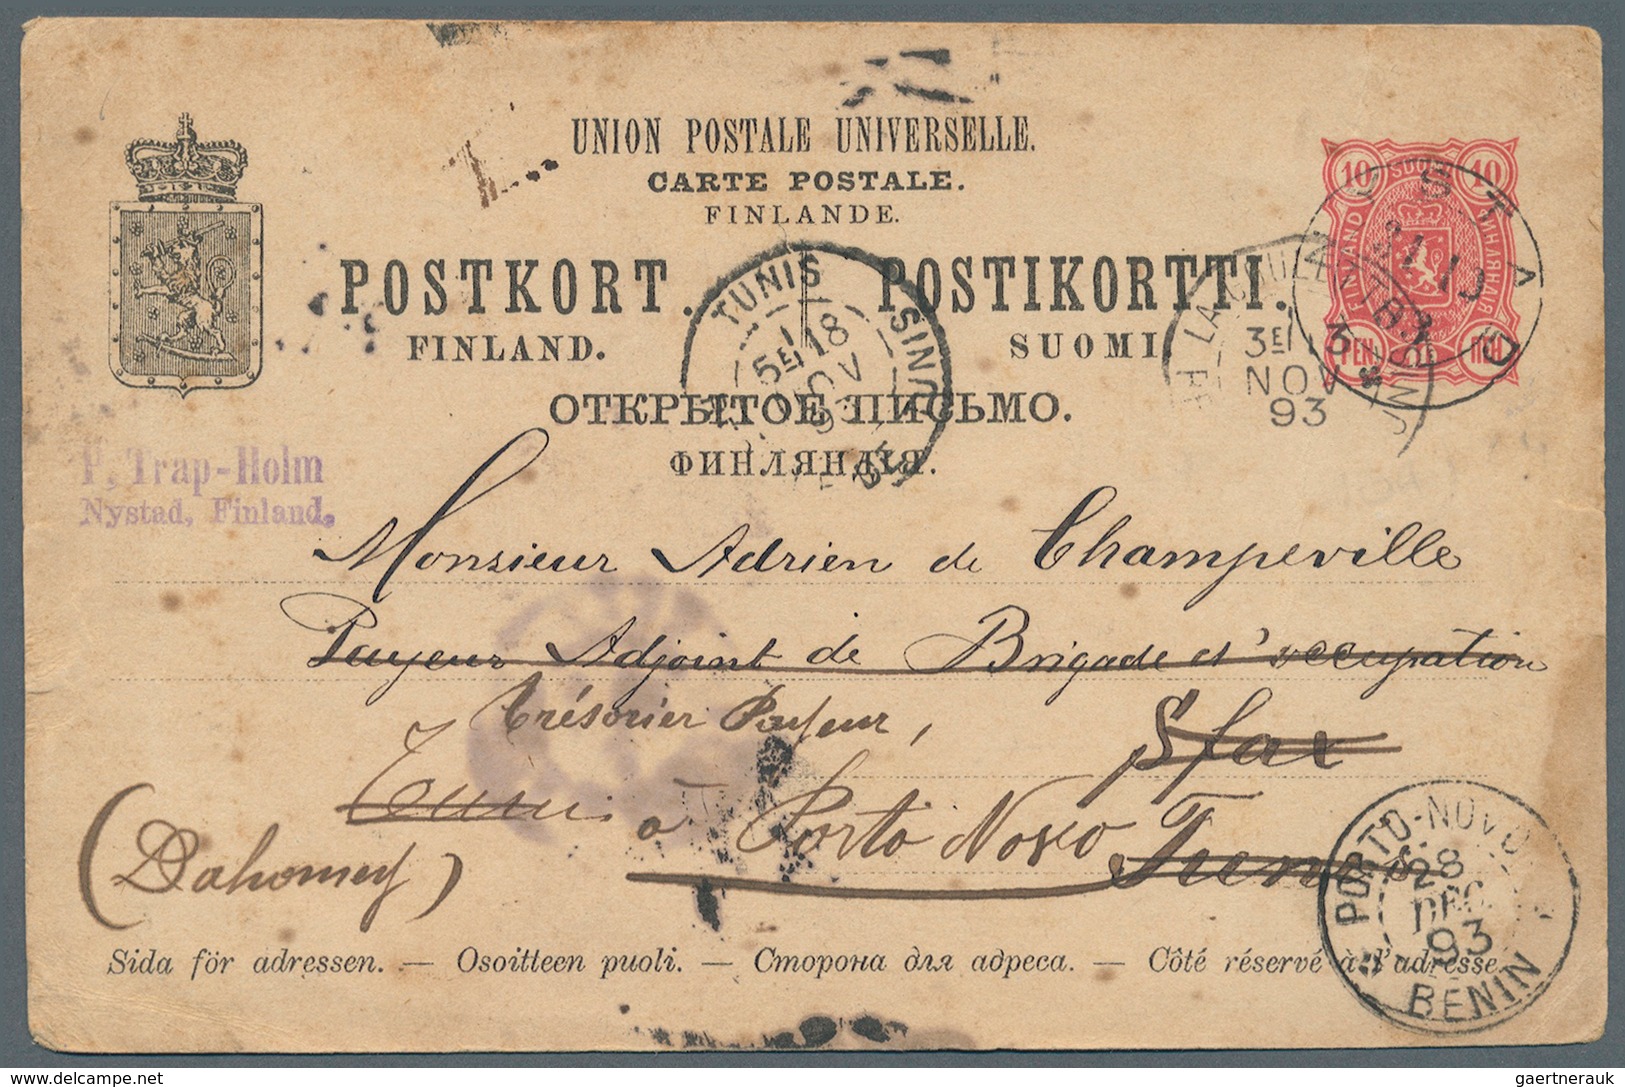 UNION POSTALE UNIVERSELLE.
CARTE POSTALE.
FINLANDE.
POSTKORT. POSTIKORTTI.
FINLAND. SUOMI
ОТКРЫТОЕ ПИСЬМО.
ФИНЛЯНДІЯ.
10 10
PEN. ПЕН.
TUNIS
1
5E 18
NOV
TUNISIE
LA GOULETTE
3E
NOV
93
TUNISIE
NYSTAD
21 10
93
P. Trap-Holm
Nystad, Finland.
Monsieur Adrien de Champeville
Payeur Adjoint de Brigade d'occupation
Trésorier Payeur, Sfax
Tunis à Porto Novo Tunis
(Dahomey)
PORTO-NOVO
28
DEC
93
BENIN
Sida för adressen. — Osoitteen puoli. — Сторона для адреса. — Côté réservé à l'adresse.
delcampe.net
gaertnerauk